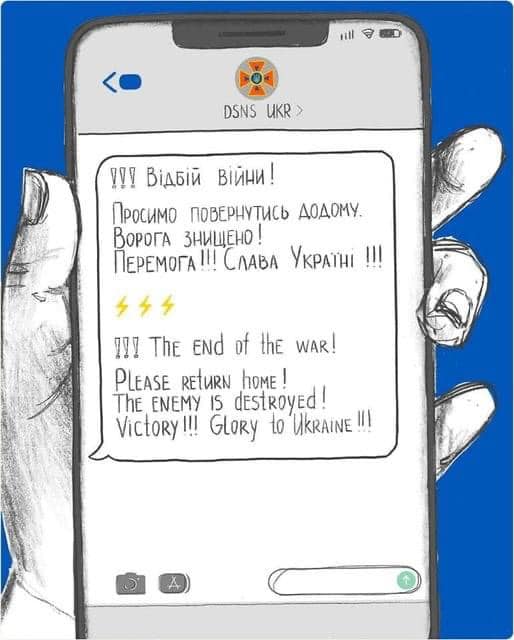 DSNS UKR >
!!! Відбій війни!
Просимо повернутись додому.
Ворога знищено!
Перемога!!! Слава Україні !!!
⚡⚡⚡
!!! The end of the war!
Please return home!
The enemy is destroyed!
Victory!!! Glory to Ukraine!!!